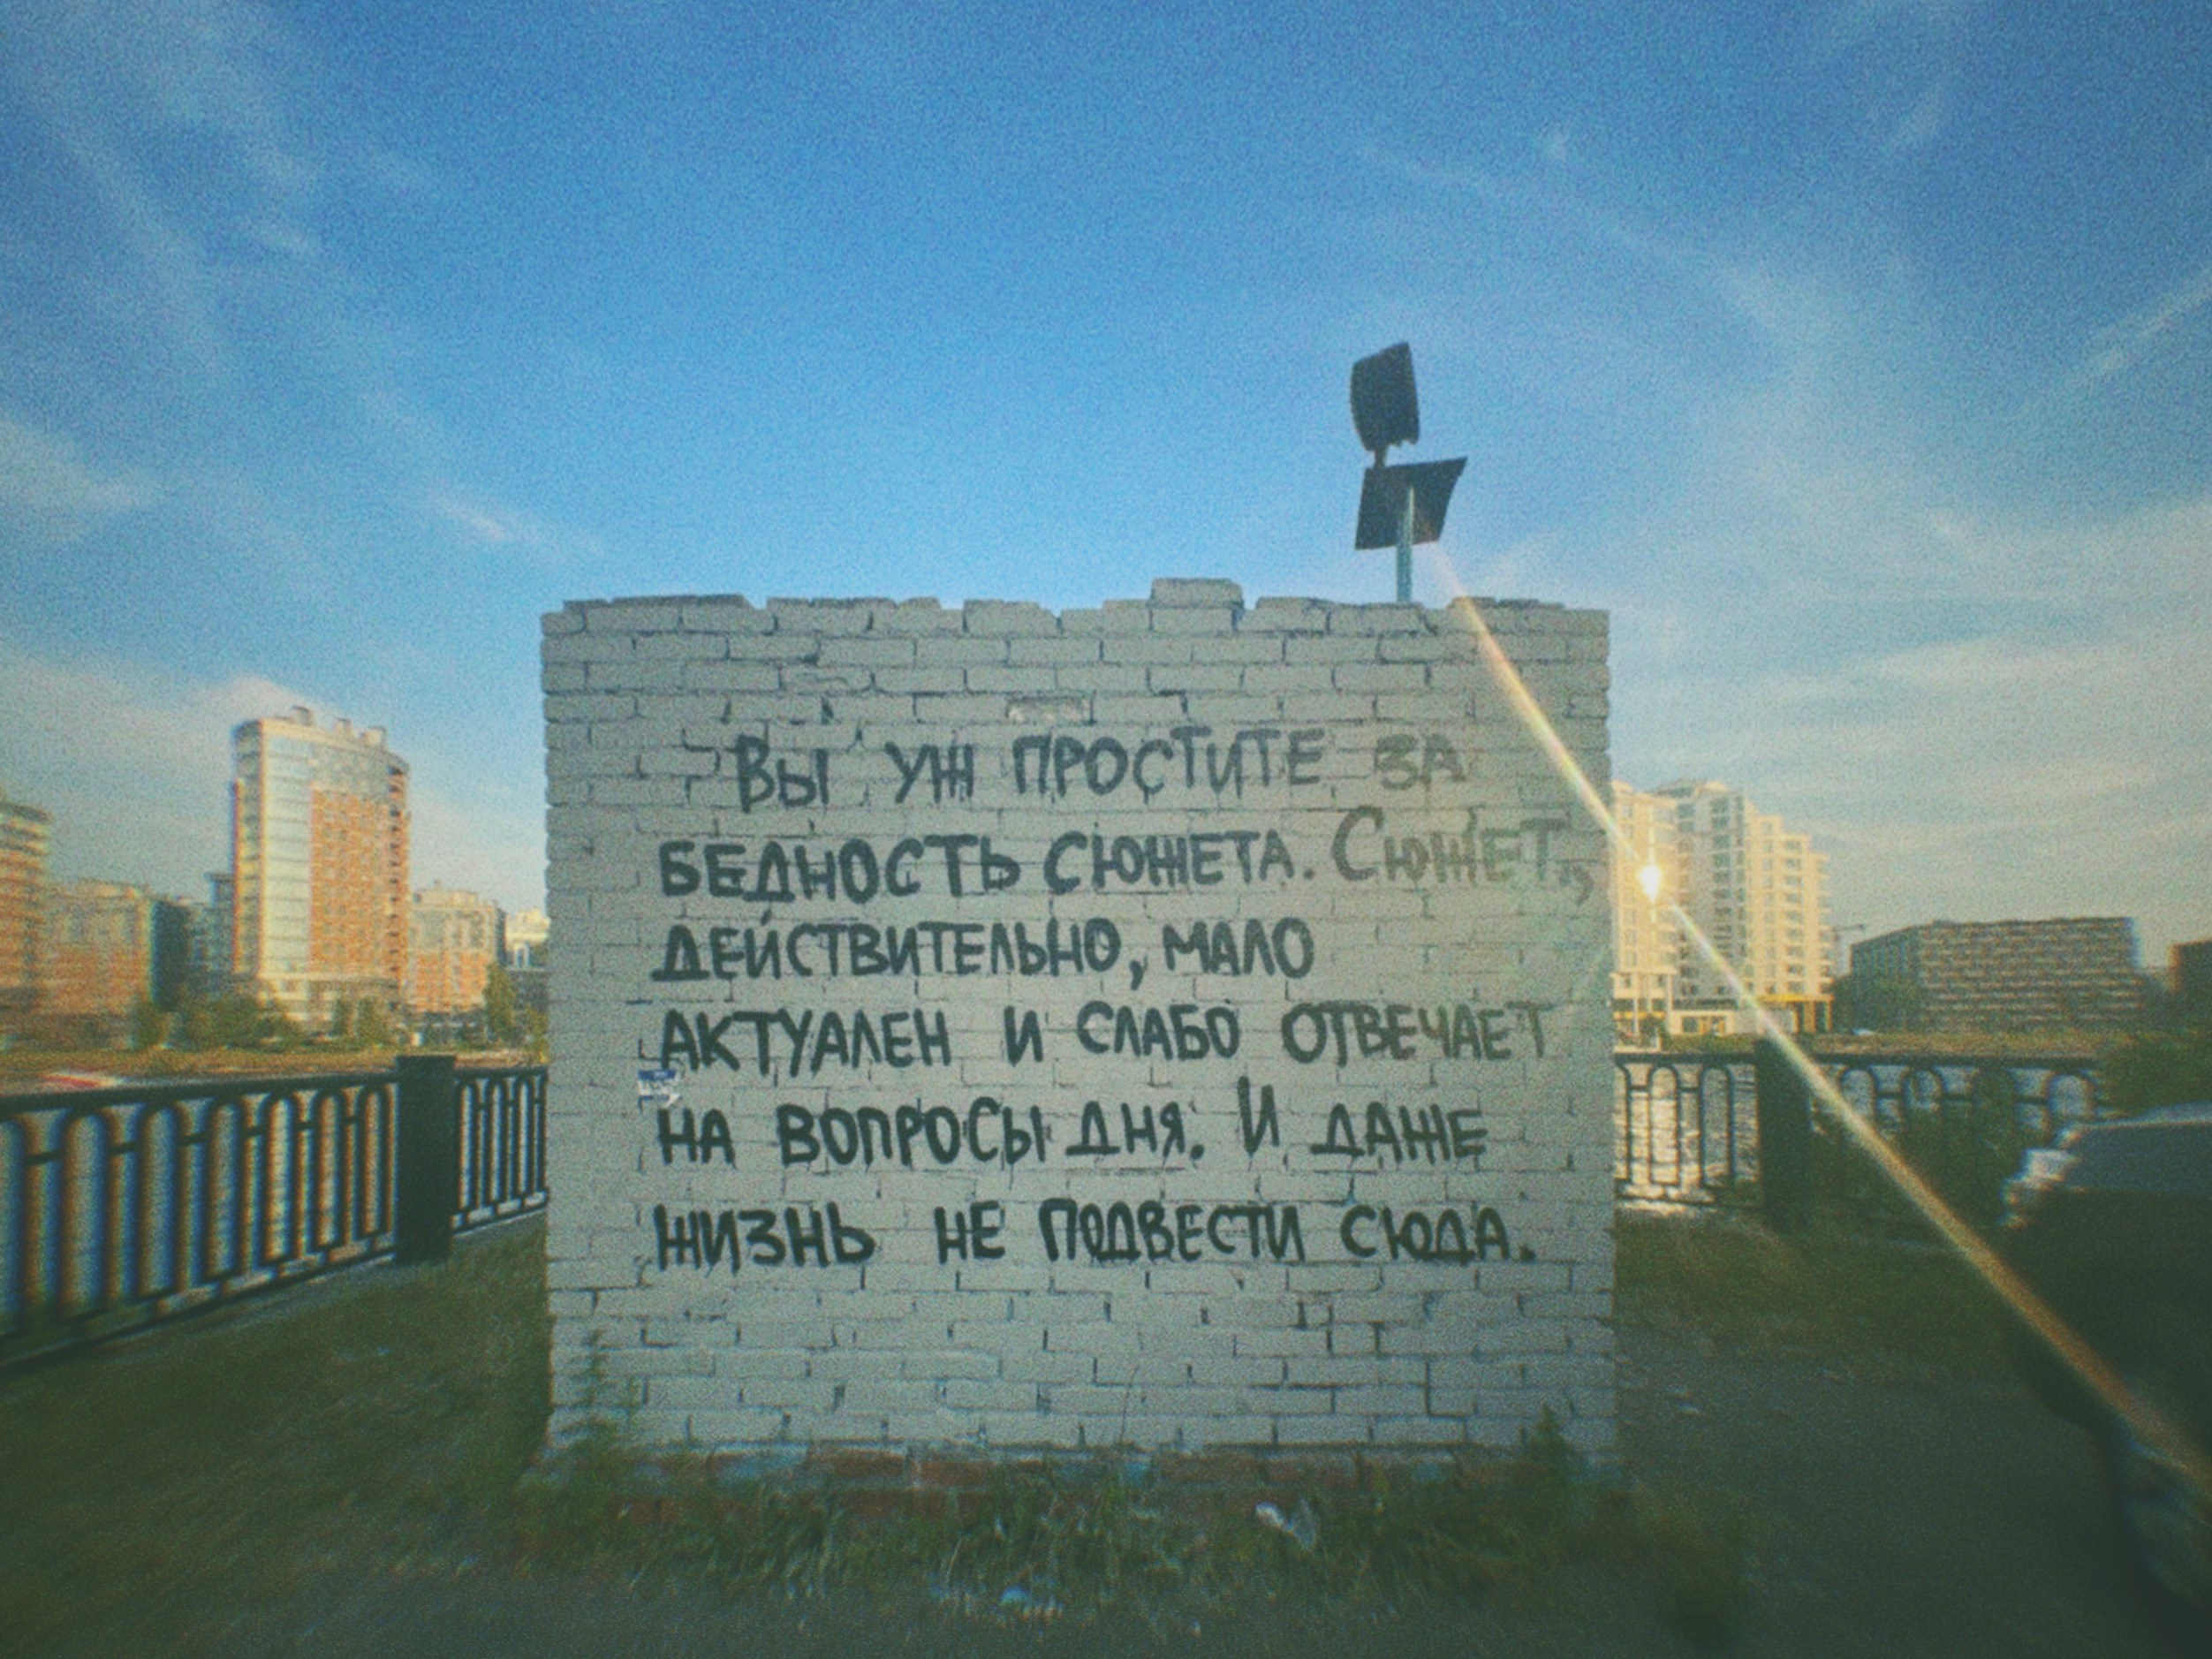 Вы уж простите за
бедность сюжета. Сюжет,
действительно, мало
актуален и слабо отвечает
на вопросы дня. И даже
жизнь не подвести сюда.